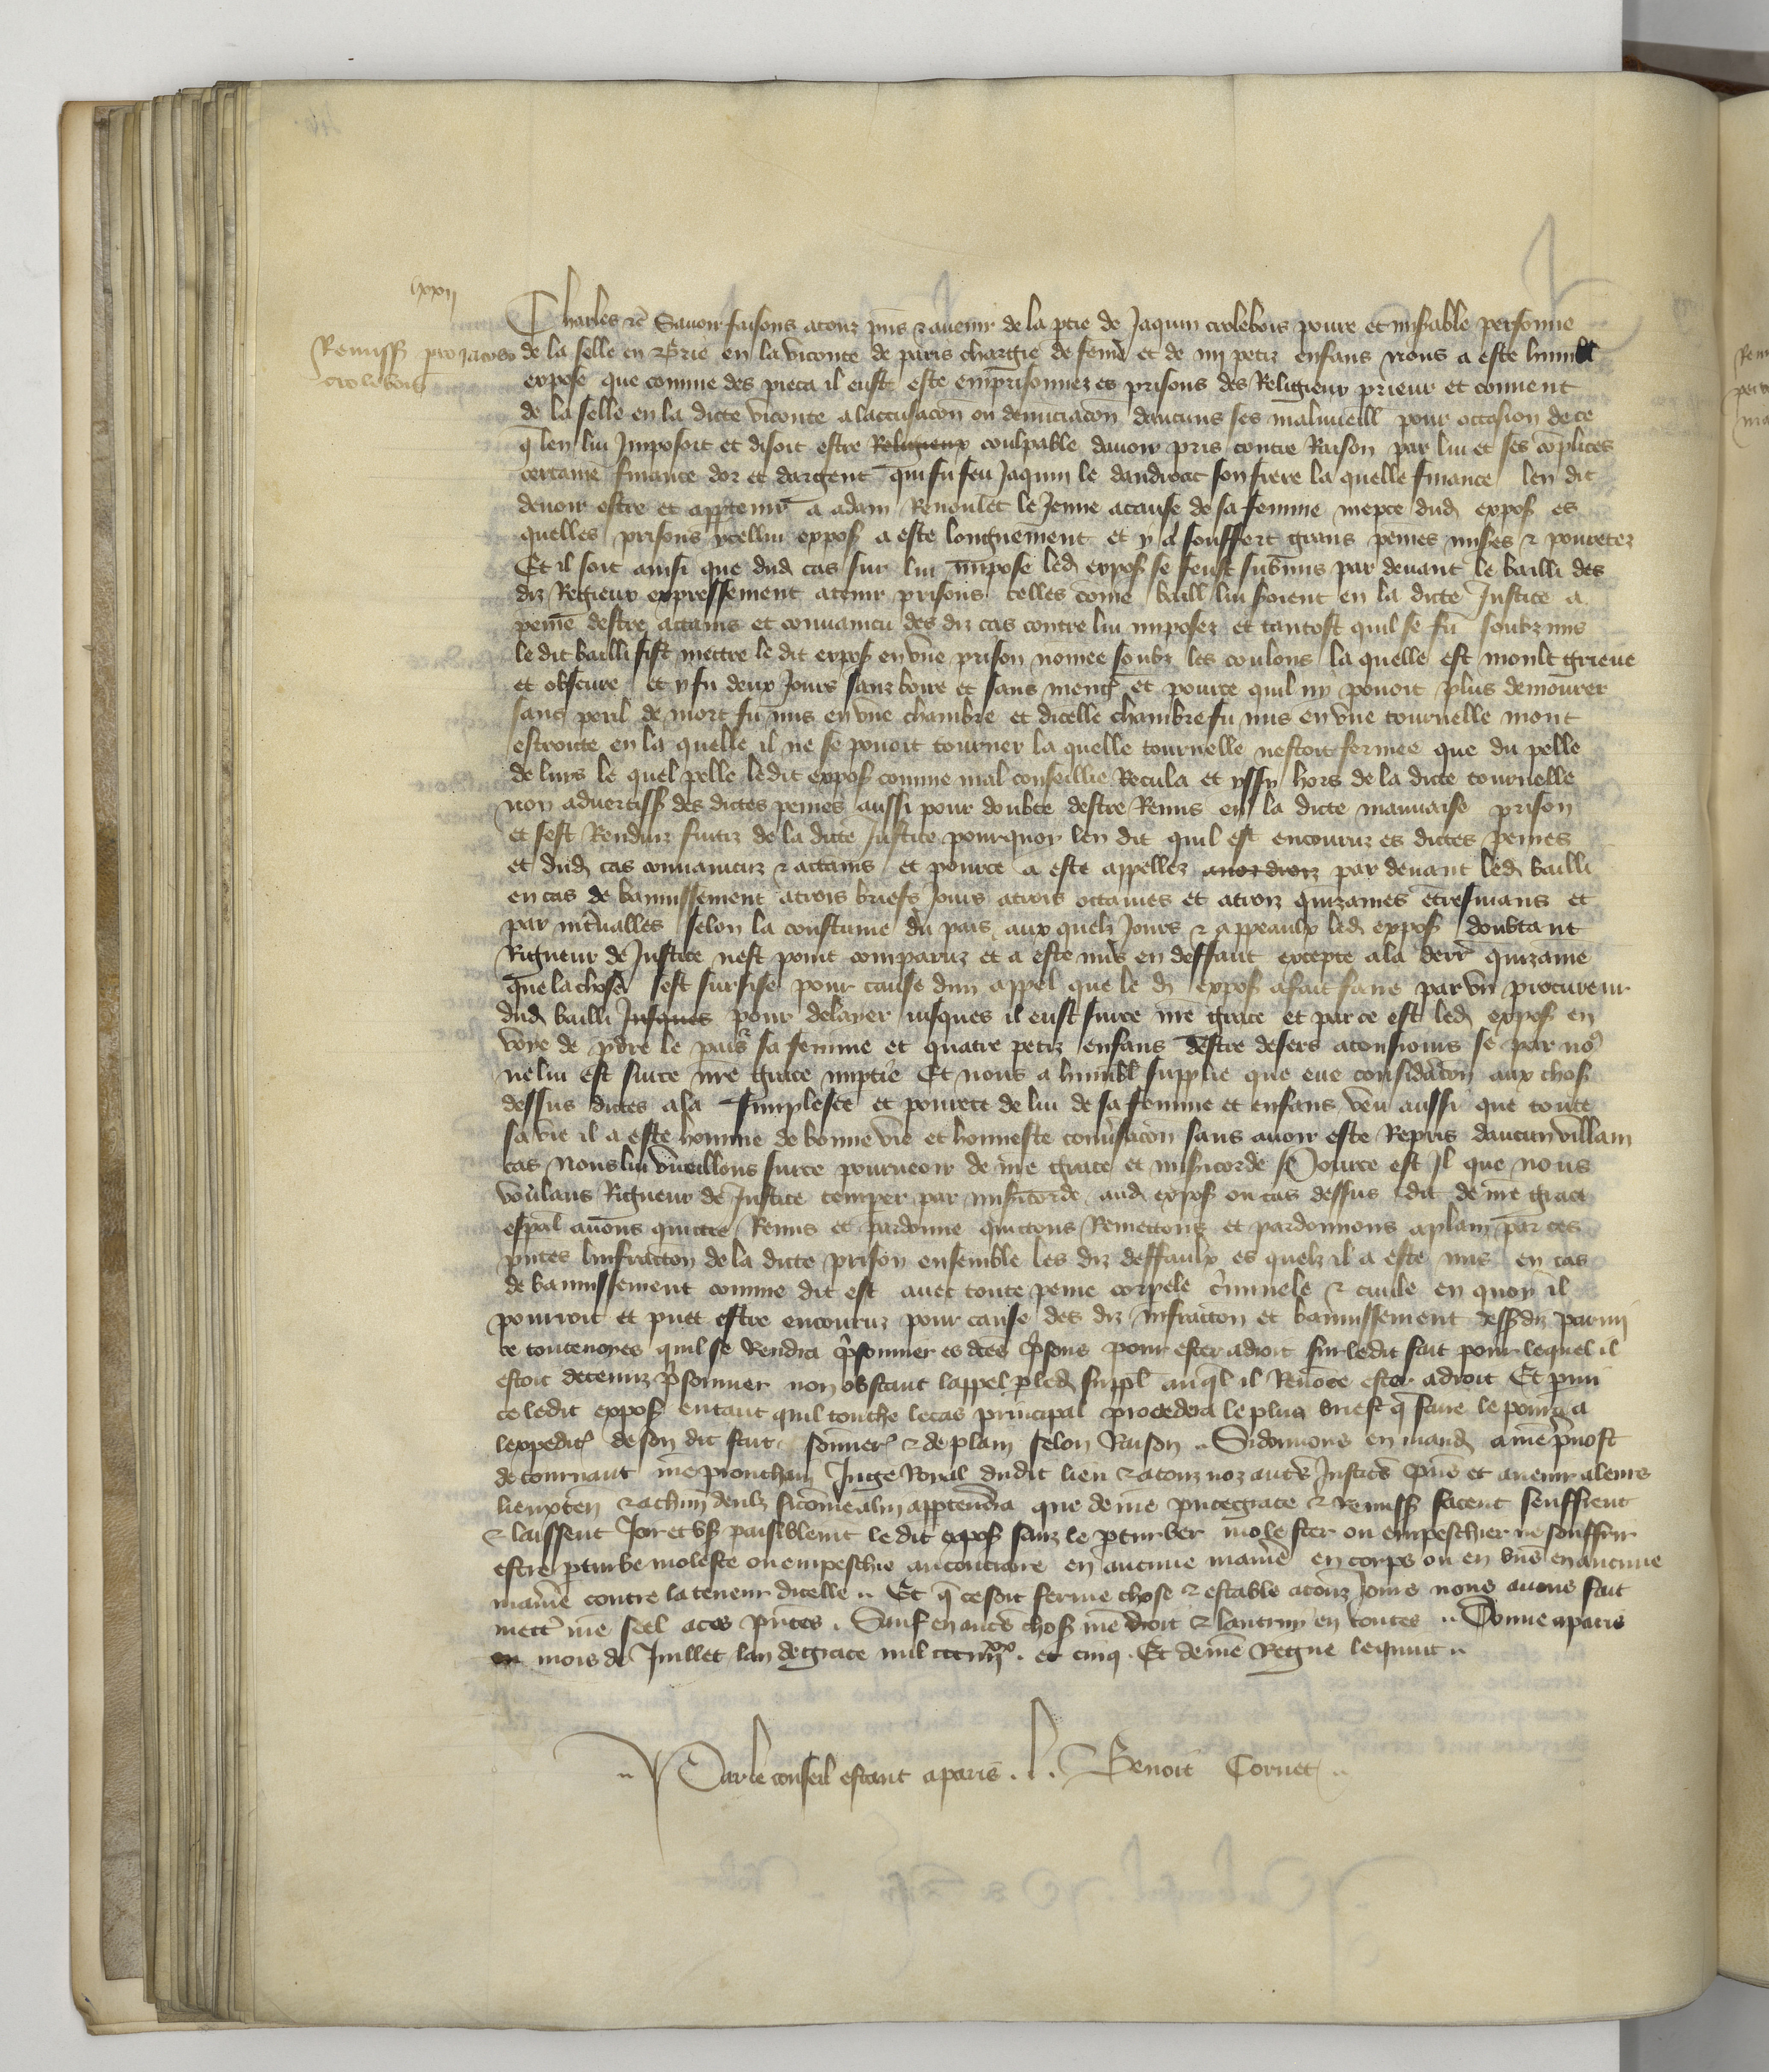 lxxij
Remiss pro Jacobo
crolebois
Charles etc Savoir faisons a touz pns et avenir de la ptie de Jaquin crolebois povre et misable personne
de la selle en Brie en la viconte de paris chargie de feme et de iiij petiz enfans nous a este humblt
expose que comme des pieca il eust este emprisonnez es prisons des Religieux prieur et couvent
de la selle en la dicte viconte a laccusacon ou denuciacon daucuns ses malvueill pour occasion de ce
q len lui Imposoit et disoit estre Religieux coulpable davoir pris contre Raison par lui et ses coplices
certaine finance dor et dargent qui fu feu Jaquin le dandroat son frere la quelle finance len dit
devoir estre et apptenir a adam Renoulet le Jenne a cause de sa femme niepce dud expos es
quelles prisons ycellui expos a este longuement et y a souffert grans peines mises et povretez
Et il soit ainsi que dud cas sur lui impose led expos se feust submis par devant le bailli des
diz Regieux expressement a tenir prisons telles come baill lui soient en la dicte Justice a
peine destre actains et convaincu des diz cas contre lui imposez et tantost quil se fu soubzmis
le dit bailli fist mettre le dit expos en vne prison nomee soubz les coulons la quelle est moult grieve
et obscure et y fu deux Jours sanz boire et sans meng et pource quil ny povoit plus demourer
sans peril de mort fu mis en vne chambre et dicelle chambre fu mis en vne tournelle mont
estroite en la quelle il ne se povoit tourner la quelle tournelle nestoit fermee que du pelle
de luis le quel pelle ledit expos comme mal conseillie Recula et yssy hors de la dicte tournelle
non advertiss des dictes peines aussi pour doubte destre Remis en la dicte mauvaise prison
et sest Renduz fuitiz de la dicte Justice pourquoy len dit quil est encouruz es dictes peines
et dud cas convaincuz et actains et pource a este appellez aux droiz par devant led bailli
en cas de bannissement a trois briefs Jours a trois octaines et a troiz quizaines etresuians et
par intvalles selon la coustume du pais aux quelz Jours et appeaulx led expos doubtant
Rigueur de Justice nest point comparuz et a este mis en deffaut excepte a la derr quizaine
que la chose sest sursise pour cause dun appel que le d expos a fait faire par vn procureur
dud bailli Jusques pour delaier iusques il eust sur ce nre grace et par ce est led expos en
voye de pdre le pais sa femme et quatre petiz enfans destre desers a tousiours se par no
ne lui est sur ce nre grace imptie Et nous a humbl supplie que eue consideracon aux chos
dessus dictes a la simplesce et povrete de lui de sa femme et enfans veu aussi que toute
sa vie il a este homme de bonne vie et honneste conversacon sans avoir este Repris daucun villain
cas nous lui vueillons sur ce pourveoir de nre grace et misicorde Pource est Il que nous
voulans Rigueur de Justice temper par misicorde aud expos ou cas dessus dit de nre grace
espal avons quicte Remis et pardonne quictons Remettons et pardonnons a plain par ces
pntes linfraction de la dicte prison ensemble les diz deffaulx es quelz il a este mis en cas
de bannissement comme dit est avec toute peine corpele criminele et civile en quoy il
pourroit et puet estre encouruz pour cause des diz infraction et bannissement dessdiz parmi
ce toutevoyes quil se Rendra prisonner es dctes prisons pour ester a droit sur ledit fait pour lequel il
estoit detenuz prisonner non obstant lappel pled suppl auql il Renoce ester a droit Et pmi
ce ledit expos entant quil touche le cas principal procedera le plus brief q faire le pourra a
lexpedit de son dit fait sommer et de plain selon Raison .. Si donnons en mand a nre prevost
de tournant nre prouchain Juge Royal dudit lieu et a touz noz autrs Justicrs pns et avenir a leurs
lieuxten et a chun deulz sicome a lui apptendra que de nre pnte grace et Remiss facent seuffrent
et laissent Joir et vs paisiblemt le dit expos sanz le pturber molester ou empeschier ne souffrir
estre pturbe moleste ou empeschie au contraire en aucune manie en corps ou en biens en aucune
manie contre la teneur dicelle .. Et q ce soit ferme chose et estable a touz Jours nous avons fait
mettr nre seel a ces pntes . Sauf en autrs chos nre droit et lautruy en toutes .. Donne a paris
ou mois de Juillet lan de grace mil ccc iiij xx . et cinq . Et de nre Regne le quint ..
.. Par le conseil estant a paris . l . Benoit Cornet ..